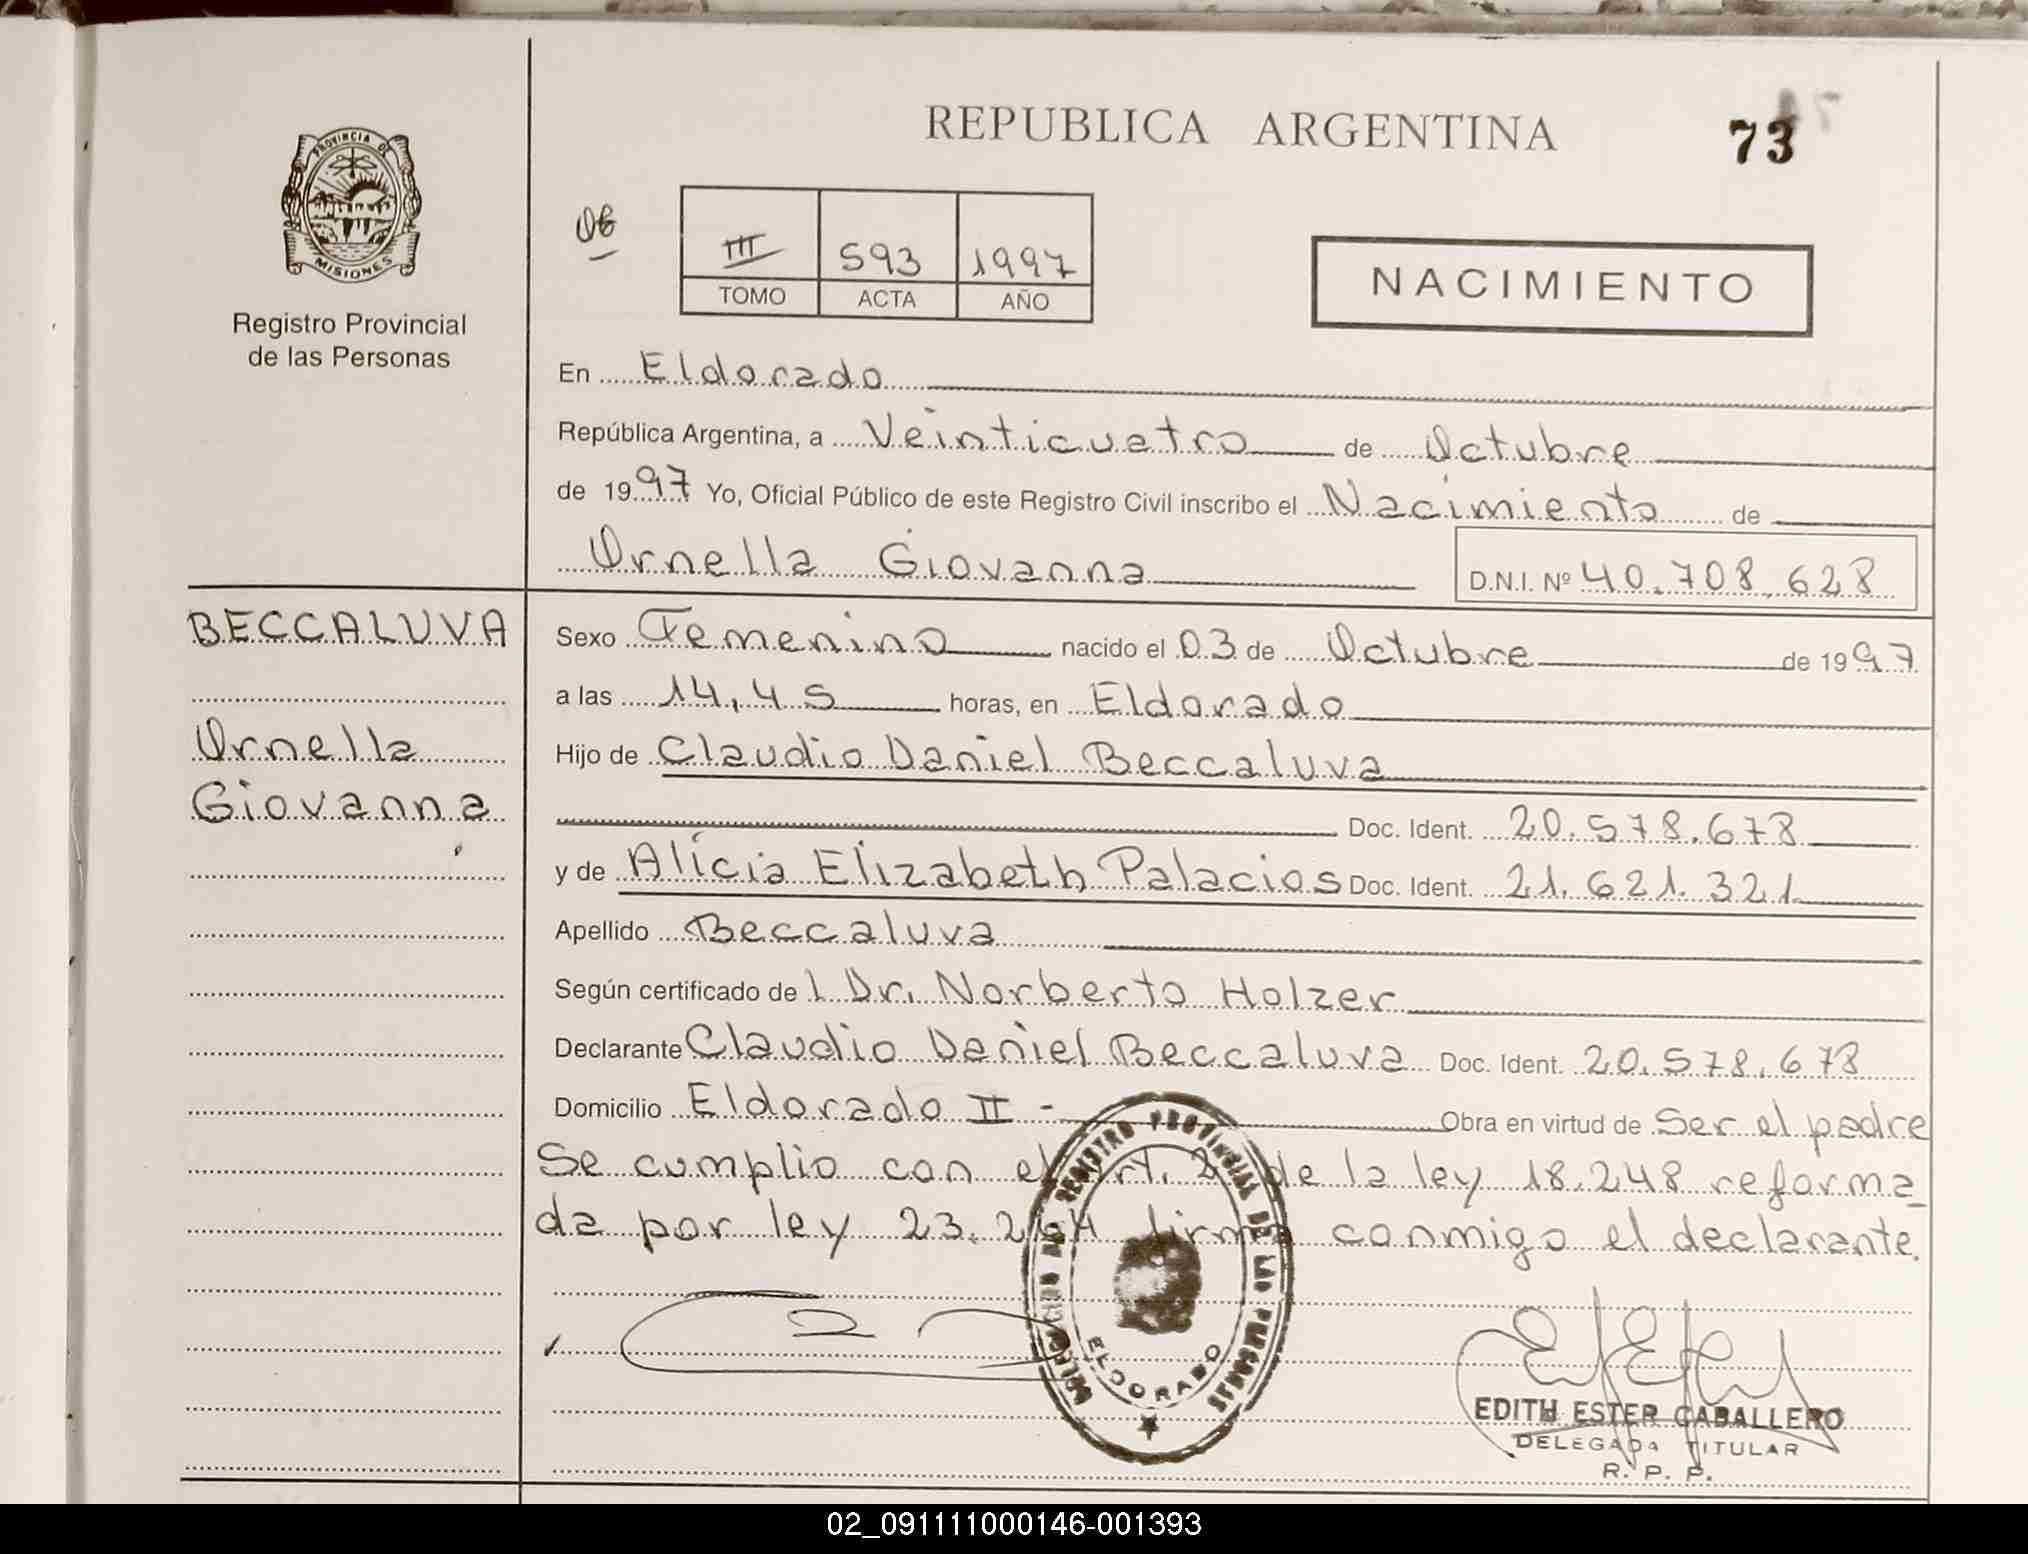 REPUBLICA ARGENTINA
73
PROVINCIA DE
MISIONES
Registro Provincial
de las Personas
06
III 593 1997
TOMO ACTA AÑO
NACIMIENTO
En Eldorado
República Argentina, a Veinticuatro de Octubre
de 1997 Yo, Oficial Público de este Registro Civil inscribo el Nacimiento de
Ornella Giovanna D.N.I. Nº 40.708.628
BECCALUVA
Ornella
Giovanna
Sexo Femenino nacido el 03 de Octubre de 1997
a las 14,45 horas, en Eldorado
Hijo de Claudio Daniel Beccaluva
Doc. Ident. 20.578.678
y de Alicia Elizabeth Palacios Doc. Ident. 21.621.321
Apellido Beccaluva
Según certificado del Dr. Norberto Holzer
Declarante Claudio Daniel Beccaluva Doc. Ident. 20.578.678
Domicilio Eldorado II - Obra en virtud de Ser el padre
Se cumplio con el Art. 2 de la ley 18.248 reforma_
da por ley 23.264 firma conmigo el declarante.
REGISTRO PROVINCIAL DE LAS PERSONAS
ELDORADO
EDITH ESTER CABALLERO
DELEGADA TITULAR
R. P. P.
02_091111000146-001393